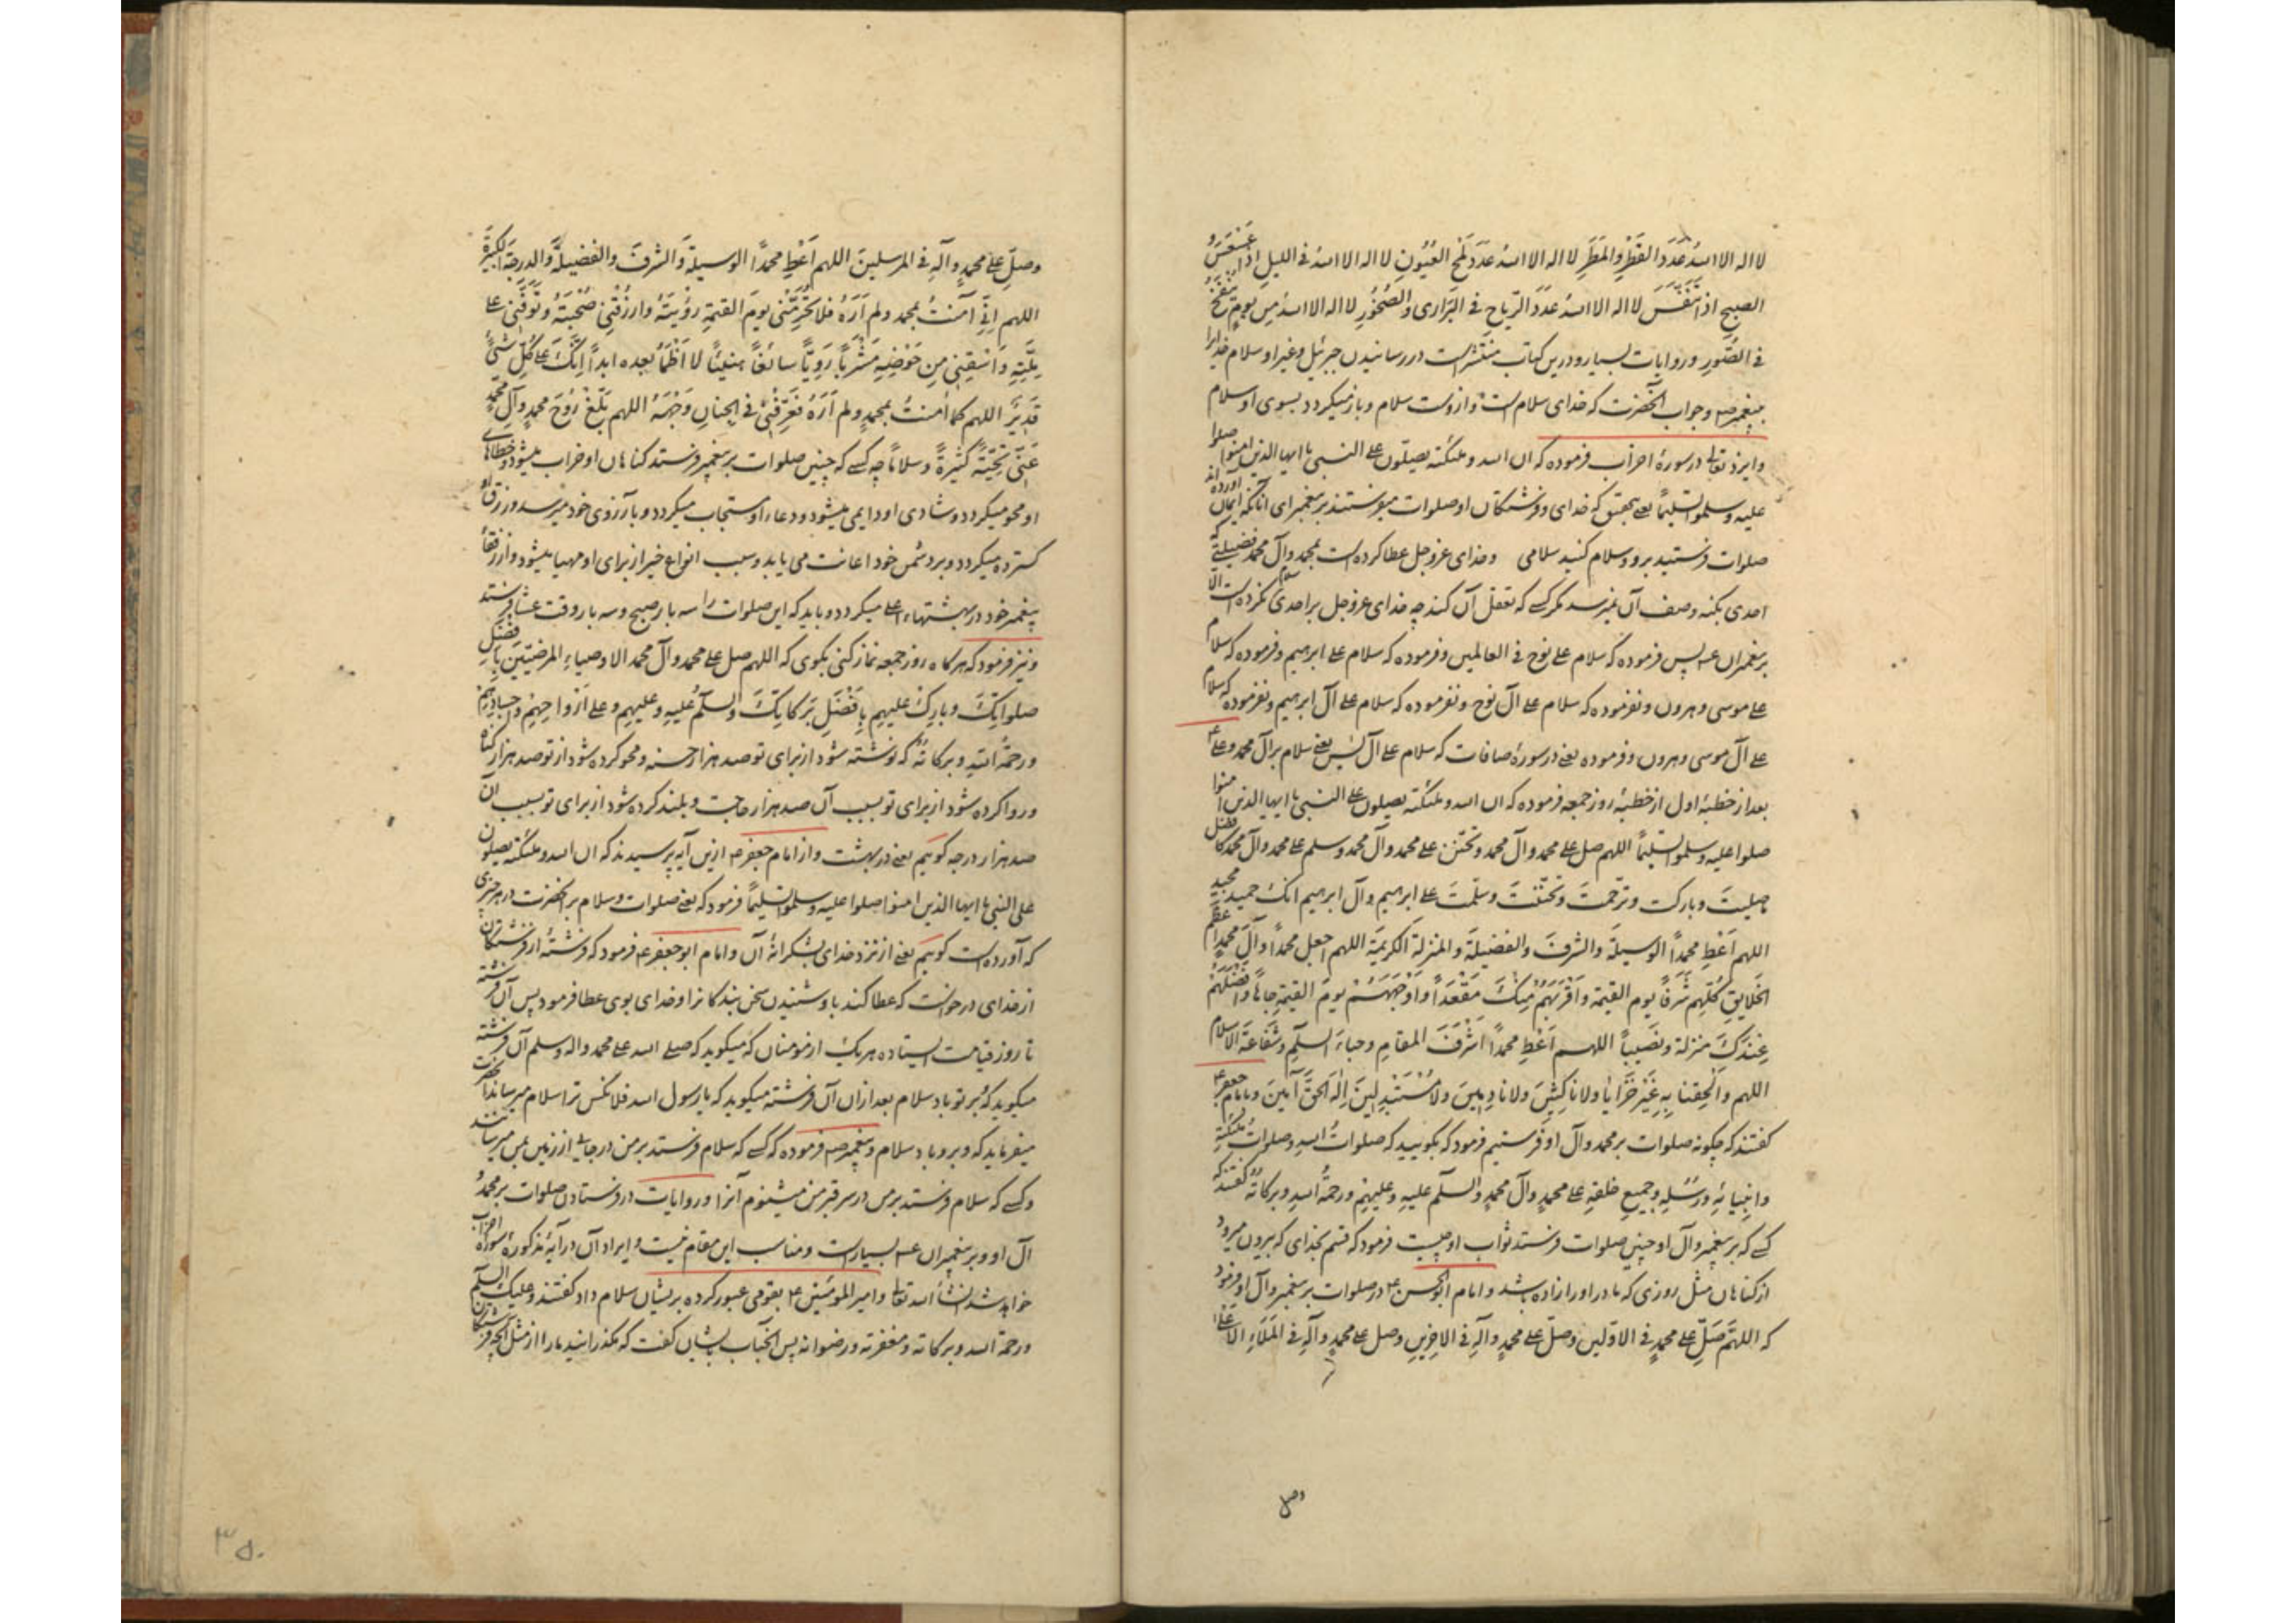 لا اله الا الله عَدَدَ القَطْرِ والمَطَرِ لا اله الا الله عَدَدَ لَمْحِ العُيُونِ لا اله الا الله فی اللیلِ اِذا عَسْعَسَ و
الصبحِ اِذا تَنَفَّسَ لا اله الا الله عَدَدَ الرّیاحِ فی البَرَاری والصُّخُورِ لا اله الا الله مِن یومٍ یُنْفَخُ
فی الصُّورِ و روایات بسیار و درین کتاب منتشر است در رسانیدن جبرئیل و غیر او سلام خدا را
بپیغمبر ص و جواب آنحضرت که خدای سلام است و ازوست سلام و باز میگردد بسوی او سلام
و ایزد تعالی در سورۀ احزاب فرموده که ان الله و ملئکته یصلّون علی النبی یا ایها الذین امنوا صلوا
علیه و سلموا تسلیمًا یعنی بتحقیق که خدای و فرشتگان او صلوات میفرستند بر پیغمبر ای آنانکه ایمان آورده اند
صلوات فرستید برو و سلام کنید سلامی و خدای عزوجل عطا کرده است بمحمد و آل محمد فضیلتی که
احدی بکنه وصف آن نمیرسد مگر کسی که تعقل آن کند چه خدای عزوجل بر احدی سلام نکرده است الا
بر پیغمبران ع پس فرموده که سلام علی نوح فی العالمین و فرموده که سلام علی ابرهیم و فرموده که سلام
علی موسی و هرون و نفرموده که سلام علی آل نوح و نفرموده که سلام علی آل ابرهیم و نفرموده که سلام
علی آل موسی و هرون و فرموده یعنی در سورۀ صافات که سلام علی آل یس یعنی سلام بر آل محمد و علی ع
بعد از خطبۀ اول از خطبۀ روز جمعه فرموده که ان الله و ملئکته یصلون علی النبی یا ایها الذین امنوا
صلوا علیه و سلموا تسلیمًا اللهم صل علی محمد و آل محمد و تحنن علی محمد و آل محمد و سلم علی محمد و آل محمد کافضل
ما صلیتَ و بارکت و ترحّمتَ و تحنّنتَ و سلّمتَ علی ابرهیم و آل ابرهیم انک حمید مجید
اللهم اَعْطِ محمدًا الوسیلةَ والشرفَ والفضیلةَ والمنزلةَ الکریمَة اللهم اجعل محمدًا و آلَ محمدٍ اعظم
الخلایقِ کُلِّهِم شَرَفًا یوم القیمة و اَقْرَبَهُم مِنکَ مَقْعَدًا و اَوْجَهَهُمْ یومَ القیمةِ جاهًا و اَفْضَلَهُمْ
عِنْدَکَ منزلةً و نَصیبًا اللهم اَعْطِ محمدًا اَشْرَفَ المقامِ و حباءَ السلمِ و شَفاعَةَ الاسلام
اللهم و اَلْحِقنا بِهِ غَیْرَ خَزَایَا ولا ناکِثِینَ ولا نادِمینَ ولا مُسْتَبْدِلینَ اِلٰهَ الحَقِّ آمینَ و بامام جعفر ع
گفتند که چگونه صلوات بر محمد و آل او فرستیم فرمود که بگویید که صلواتُ اللهِ و صلواتُ ملئکتِهِ
و انبیائِهِ و رُسُلِهِ و جمیعِ خلقِهِ علی محمدٍ و آل محمدٍ والسلم علیهِ و علیهِم و رحمةُ اللهِ و برکاتُهُ گفتند که
کسی که بر پیغمبر و آل او چنین صلوات فرستد ثواب او چیست فرمود که قسم بخدای که بیرون میرود
از گناهان مثل روزی که مادر او را زاده باشد و امام ابوالحسن ع در صلوات بر پیغمبر و آل او فرمود
که اللهمَّ صَلِّ علی محمدٍ فی الاوّلین و صلّ علی محمدٍ و آلِهِ فی الاخِرِینِ و صل علی محمدٍ و آلِهِ فی المَلَاءِ الاَعْلَی
وصل
وصلِّ علی محمدٍ و آلِهِ فی المرسلینَ اللهم اَعْطِ محمدًا الوسیلةَ والشرفَ والفضیلةَ والدرجةَ الکبیرَةَ
اللهم اِنّی آمنتُ بمحمد ولم اَرَهُ فلا تَحْرِمْنی یومَ القیمةِ رؤیتَهُ وارزُقْنی صُحْبَتَهُ و تَوَفَّنی علی
مِلَّتِهِ وَ اسْقِنِی مِن حَوْضِهِ مَشْرَبًا رَوِیًّا سائغًا هنیئًا لا اَظْمَأُ بعده ابدًا اِنَّکَ علی کُلِّ شیئٍ
قَدِیرٌ اللهم کما آمنتُ بمحمدٍ ولم اَرَهُ فَعَرِّفْنی فی الجِنانِ وَجْهَهُ اللهم بَلِّغْ رُوحَ محمدٍ و آلِ محمدٍ
عَنّی تحیّةً کثیرةً و سلامًا چه کسی که چنین صلوات بر پیغمبر فرستد گناهان او خراب میشود و خطاهای
او محو میگردد و شادی او دایمی میشود و دعاء او مستجاب میگردد و بآرزوی خود میرسد و رزق او
گسترده میگردد و بر دشمن خود اعانت می یابد و سبب انواع خیر از برای او مهیا میشود و از رفقاء
پیغمبر خود در بهشتهاء اعلی میگردد و باید که این صلوات را سه بار صبح و سه بار وقت عشا فرستند
و نیز فرمود که هر گاه روز جمعه نماز کنی بگوی که اللهم صل علی محمد و آل محمد الاوصیاءِ المرضیّینَ بافضل
صلواتِکَ و بارِک علیهِم بِاَفْضَلِ بَرَکاتِکَ والسلمُ علیهِ و علیهِم و علی اَرْواحِهِم و اجسادِهِم
و رحمةُ اللهِ و برکاتُهُ که نوشته شود از برای تو صد هزار حسنه و محو کرده شود از تو صد هزار گناه
و روا کرده شود از برای تو بسبب آن صد هزار حاجت و بلند کرده شود از برای تو بسبب آن
صد هزار درجه گویم یعنی در بهشت و از امام جعفر ع ازین آیه پرسیدند که ان الله و ملئکته یصلون
علی النبی یا ایها الذین امنوا صلوا علیه و سلموا تسلیمًا فرمود که یعنی صلوات و سلام بر آنحضرت در هر چیزی
که آورده است گویم یعنی از نزد خدای بشکرانۀ آن و امام ابو جعفر ع فرمود که فرشتۀ از فرشتگان
از خدای درخواست که عطا کند باو شنیدن سخن بندگانرا و خدای بوی عطا فرمود پس آن فرشته
تا روز قیامت ایستاده هر یک از مومنان که میگوید که صلی الله علی محمد و اله و سلم آن فرشته
میگوید که بر تو باد سلام بعد از آن آن فرشته میگوید که یا رسول الله فلانکس ترا سلام میرساند آنحضرت
میفرماید که و برو باد سلام و پیغمبر ص فرموده که کسی که سلام فرستد بر من در جایی از زمین بمن میرسانند
و کسی که سلام فرستد بر من در سر قبر من میشنوم آنرا و روایات در فرستادن صلوات بر محمد و
آل او و بر پیغمبران ع بسیارست و مناسب این مقام نیست و ایراد آن در آیۀ مذکورۀ سورۀ احزاب
خواهد شد انشاء الله تعالی و امیر المومنین ع بقومی عبور کرده بریشان سلام داد گفتند و علیک السلم
و رحمة الله و برکاته و مغفرته و رضوانه پس آنجناب بایشان گفت که مگذرانید ما را از مثل آنچه فرشتگان
۳۵۰